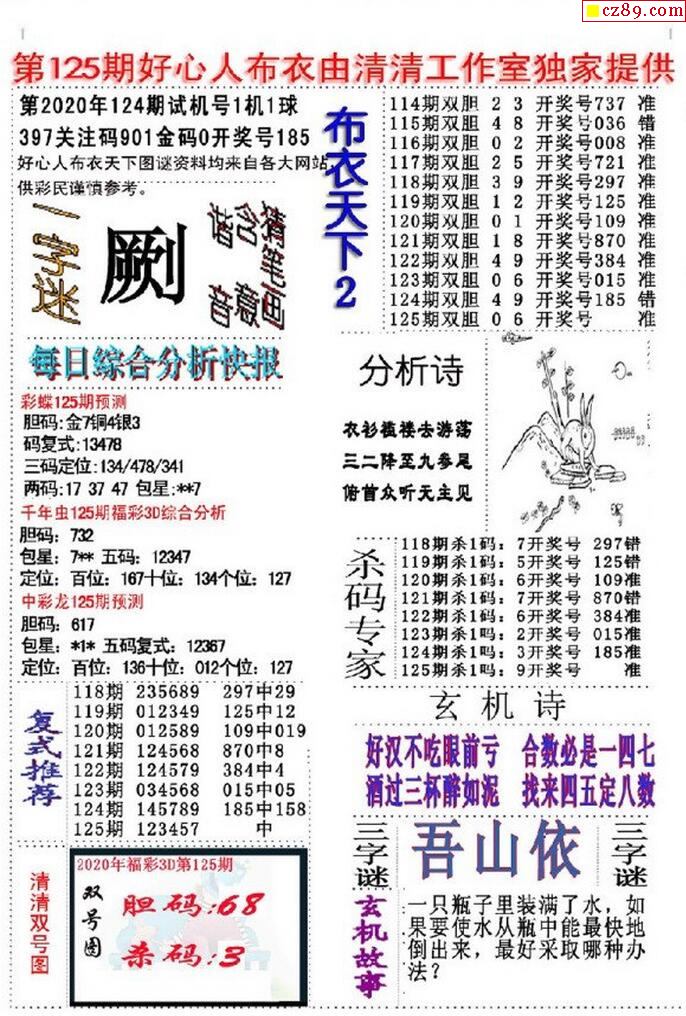 cz89.com
第125期好心人布衣由清清工作室独家提供
第2020年124期试机号1机1球
397关注码901金码0开奖号185
好心人布衣天下图谜资料均来自各大网站,
供彩民谨慎参考。
一字迷
劂
谐音
含意
猜笔画
布衣天下2
114期双胆 2 3 开奖号737 准
115期双胆 4 8 开奖号036 错
116期双胆 0 2 开奖号008 准
117期双胆 2 5 开奖号721 准
118期双胆 3 9 开奖号297 准
119期双胆 1 2 开奖号125 准
120期双胆 0 1 开奖号109 准
121期双胆 1 8 开奖号870 准
122期双胆 4 9 开奖号384 准
123期双胆 0 6 开奖号015 准
124期双胆 4 9 开奖号185 错
125期双胆 0 6 开奖号 准
每日综合分析快报
彩蝶125期预测
胆码:金7铜4银3
码复式:13478
三码定位:134/478/341
两码:17 37 47 包星:**7
千年虫125期福彩3D综合分析
胆码: 732
包星: 7** 五码: 12347
定位: 百位: 167十位: 134个位: 127
中彩龙125期预测
胆码: 617
包星: *1* 五码复式: 12367
定位: 百位: 136十位: 012个位: 127
分析诗
衣衫褴褛去游荡
三二降至九参尾
俯首众听天主见
杀码专家
118期杀1码: 7开奖号 297错
119期杀1码: 5开奖号 125错
120期杀1码: 6开奖号 109准
121期杀1码: 7开奖号 870错
122期杀1码: 6开奖号 384准
123期杀1吗: 2开奖号 015准
124期杀1吗: 3开奖号 185准
125期杀1吗: 9开奖号 准
复式推荐
118期 235689 297中29
119期 012349 125中12
120期 012589 109中019
121期 124568 870中8
122期 124579 384中4
123期 034568 015中05
124期 145789 185中158
125期 123457 中
玄机诗
好汉不吃眼前亏 合数必是一四七
酒过三杯醉如泥 找来四五定八数
三字谜
吾山依
三字谜
清清双号图
2020年福彩3D第125期
双号图
胆码:68
杀码:3
玄机故事
一只瓶子里装满了水，如
果要使水从瓶中能最快地
倒出来，最好采取哪种办
法？